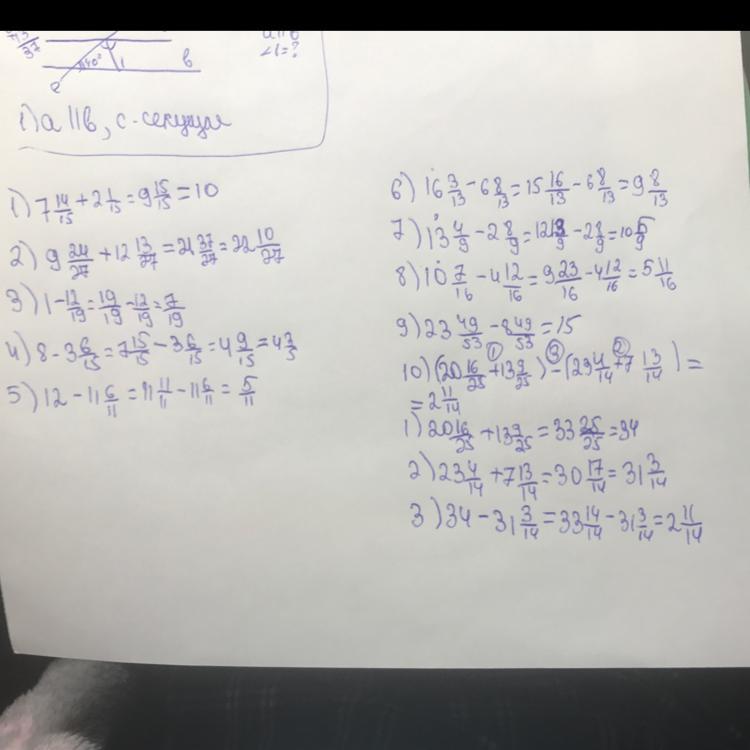 a || b
∠1=?
40°
1
b
1) a || b, c - секущая
1) 7 14/15 + 2 1/15 = 9 15/15 = 10
2) 9 24/27 + 12 13/27 = 21 37/27 = 22 10/27
3) 1 - 12/19 = 19/19 - 12/19 = 7/19
4) 8 - 3 6/15 = 7 15/15 - 3 6/15 = 4 9/15 = 4 3/5
5) 12 - 11 6/11 = 11 11/11 - 11 6/11 = 5/11
6) 16 3/13 - 6 8/13 = 15 16/13 - 6 8/13 = 9 8/13
7) 13 4/9 - 2 8/9 = 12 13/9 - 2 8/9 = 10 5/9
8) 10 7/16 - 4 12/16 = 9 23/16 - 4 12/16 = 5 11/16
9) 23 49/53 - 8 49/53 = 15
10) (20 16/25 + 13 9/25) - (23 4/14 + 7 13/14) =
= 2 11/14
1) 20 16/25 + 13 9/25 = 33 25/25 = 34
2) 23 4/14 + 7 13/14 = 30 17/14 = 31 3/14
3) 34 - 31 3/14 = 33 14/14 - 31 3/14 = 2 11/14